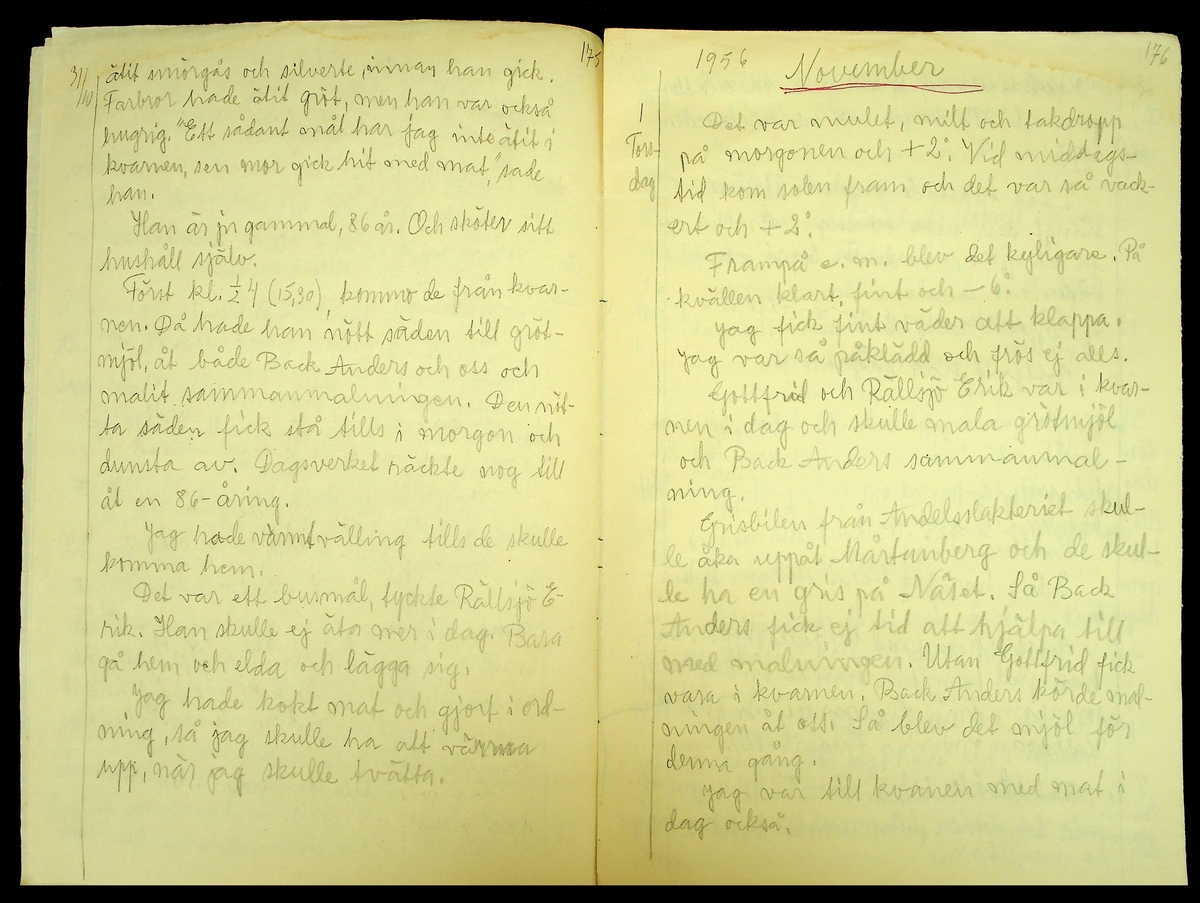 175
31/10
ätit smörgås och silverte, innan han gick.
Farbror hade ätit gröt, men han var också
hugrig. "Ett sådant mål har jag inte ätit i
kvarnen, sen mor gick hit med mat," sade
han.
Han är ju gammal, 86 år. Och sköter sitt
hushåll själv.
Först kl. ½ 4 (15,30) kommo de från kvar-
nen. Då hade han nött säden till gröt-
mjöl, åt både Back Anders och oss och
malit sammanmalningen. Den nöt-
ta säden fick stå tills i morgon och
dunsta av. Dagsverket räckte nog till
åt en 86-åring.
Jag hade varmt välling tills de skulle
komma hem.
Det var ett busmål, tyckte Rällsjö E-
rik. Han skulle ej äta mer i dag. Bara
gå hem och elda och lägga sig.
Jag hade kokt mat och gjort i ord-
ning, så jag skulle ha att värma
upp, när jag skulle tvätta.
176
1956 November
1
Tors-
dag
Det var mulet, milt och takdropp
på morgonen och +2°. Vid middags-
tid kom solen fram och det var så vack-
ert och +2°.
Frampå e. m. blev det kyligare. På
kvällen klart, fint och -6°.
Jag fick fint väder att klappa.
Jag var så påklädd och frös ej alls.
Gottfrid och Rällsjö Erik var i kvar-
nen i dag och skulle mala grötmjöl
och Back Anders sammanmal-
ning.
Grisbilen från Andelsslakteriet skul-
le åka uppåt Mårtanberg och de skul-
le ha en gris på Näset. Så Back
Anders fick ej tid att hjälpa till
med malningen. Utan Gottfrid fick
vara i kvarnen. Back Anders körde mal-
ningen åt oss. Så blev det mjöl för
denna gång.
Jag var till kvanen med mat i
dag också.